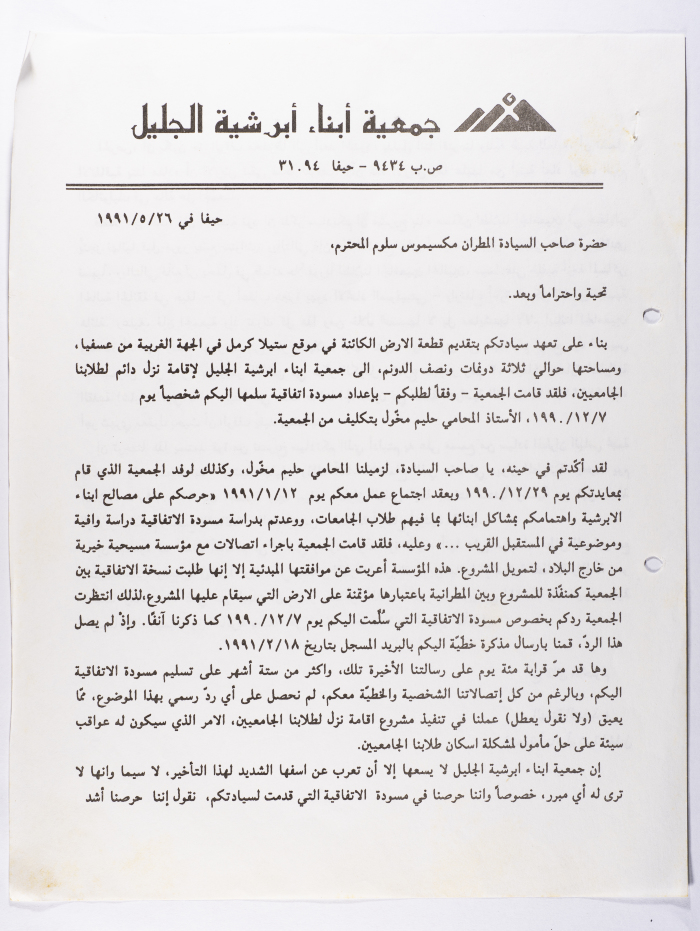 جمعية أبناء أبرشية الجليل
ص.ب ٩٤٣٤ - حيفا ٣١٠٩٤
حيفا في ١٩٩١/٥/٢٦
حضرة صاحب السيادة المطران مكسيموس سلوم المحترم،
تحية واحتراماً وبعد.
بناء على تعهد سيادتكم بتقديم قطعة الارض الكائنة في موقع ستيلا كرمل في الجهة الغربية من عسفيا،
ومساحتها حوالي ثلاثة دونمات ونصف الدونم، الى جمعية ابناء ابرشية الجليل لإقامة نزل دائم لطلابنا
الجامعيين، فلقد قامت الجمعية - وفقاً لطلبكم - بإعداد مسودة اتفاقية سلمها اليكم شخصياً يوم
١٩٩٠/١٢/٧، الأستاذ المحامي حليم مخّول بتكليف من الجمعية.
لقد أكّدتم في حينه، يا صاحب السيادة، لزميلنا المحامي حليم مخّول، وكذلك لوفد الجمعية الذي قام
بمعايدتكم يوم ١٩٩٠/١٢/٢٩ وبعقد اجتماع عمل معكم يوم ١٩٩١/١/١٢ «حرصكم على مصالح ابناء
الابرشية واهتمامكم بمشاكل ابنائها بما فيهم طلاب الجامعات، ووعدتم بدراسة مسودة الاتفاقية دراسة وافية
وموضوعية في المستقبل القريب ...» وعليه، فلقد قامت الجمعية باجراء اتصالات مع مؤسسة مسيحية خيرية
من خارج البلاد، لتمويل المشروع. هذه المؤسسة أعربت عن موافقتها المبدئية إلا إنها طلبت نسخة الاتفاقية بين
الجمعية كمنفّذة للمشروع وبين المطرانية باعتبارها مؤتمنة على الارض التي سيقام عليها المشروع،لذلك انتظرت
الجمعية ردكم بخصوص مسودة الاتفاقية التي سُلّمت اليكم يوم ١٩٩٠/١٢/٧ كما ذكرنا آنفًا. وإذْ لم يصل
هذا الردّ، قمنا بارسال مذكرة خطّيّة اليكم بالبريد المسجل بتاريخ ١٩٩١/٢/١٨.
وها قد مرّ قرابة مئة يوم على رسالتنا الأخيرة تلك، واكثر من ستة أشهر على تسليم مسودة الاتفاقية
اليكم، وبالرغم من كل إتصالاتنا الشخصية والخطيّة معكم، لم نحصل على أي ردّ رسمي بهذا الموضوع، ممّا
يعيق (ولا نقول يعطل) عملنا في تنفيذ مشروع اقامة نزل لطلابنا الجامعيين، الامر الذي سيكون له عواقب
سيئة على حلّ مأمول لمشكلة اسكان طلابنا الجامعيين.
إن جمعية ابناء ابرشية الجليل لا يسعها إلا أن تعرب عن اسفها الشديد لهذا التأخير، لا سيما وانها لا
ترى له أي مبرر، خصوصاً واننا حرصنا في مسودة الاتفاقية التي قدمت لسيادتكم، نقول إننا حرصنا أشد